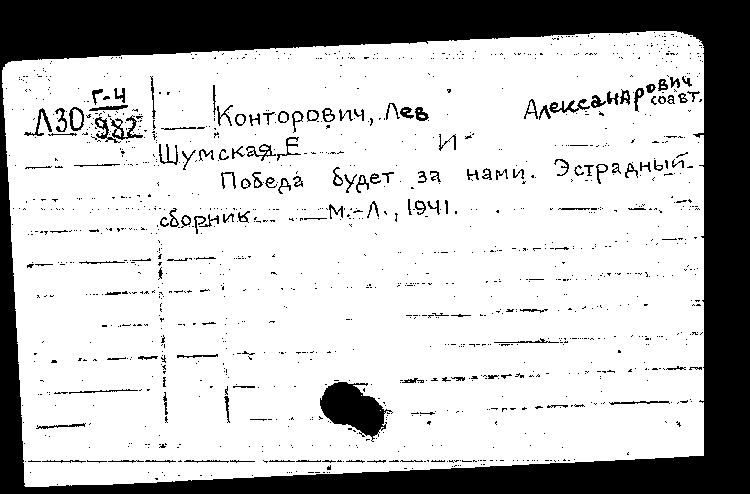 Г-4
Л30 982
Конторович, Лев Александрович
соавт.
Шумская, Е И
Победа будет за нами. Эстрадный
сборник. М.-Л., 1941.